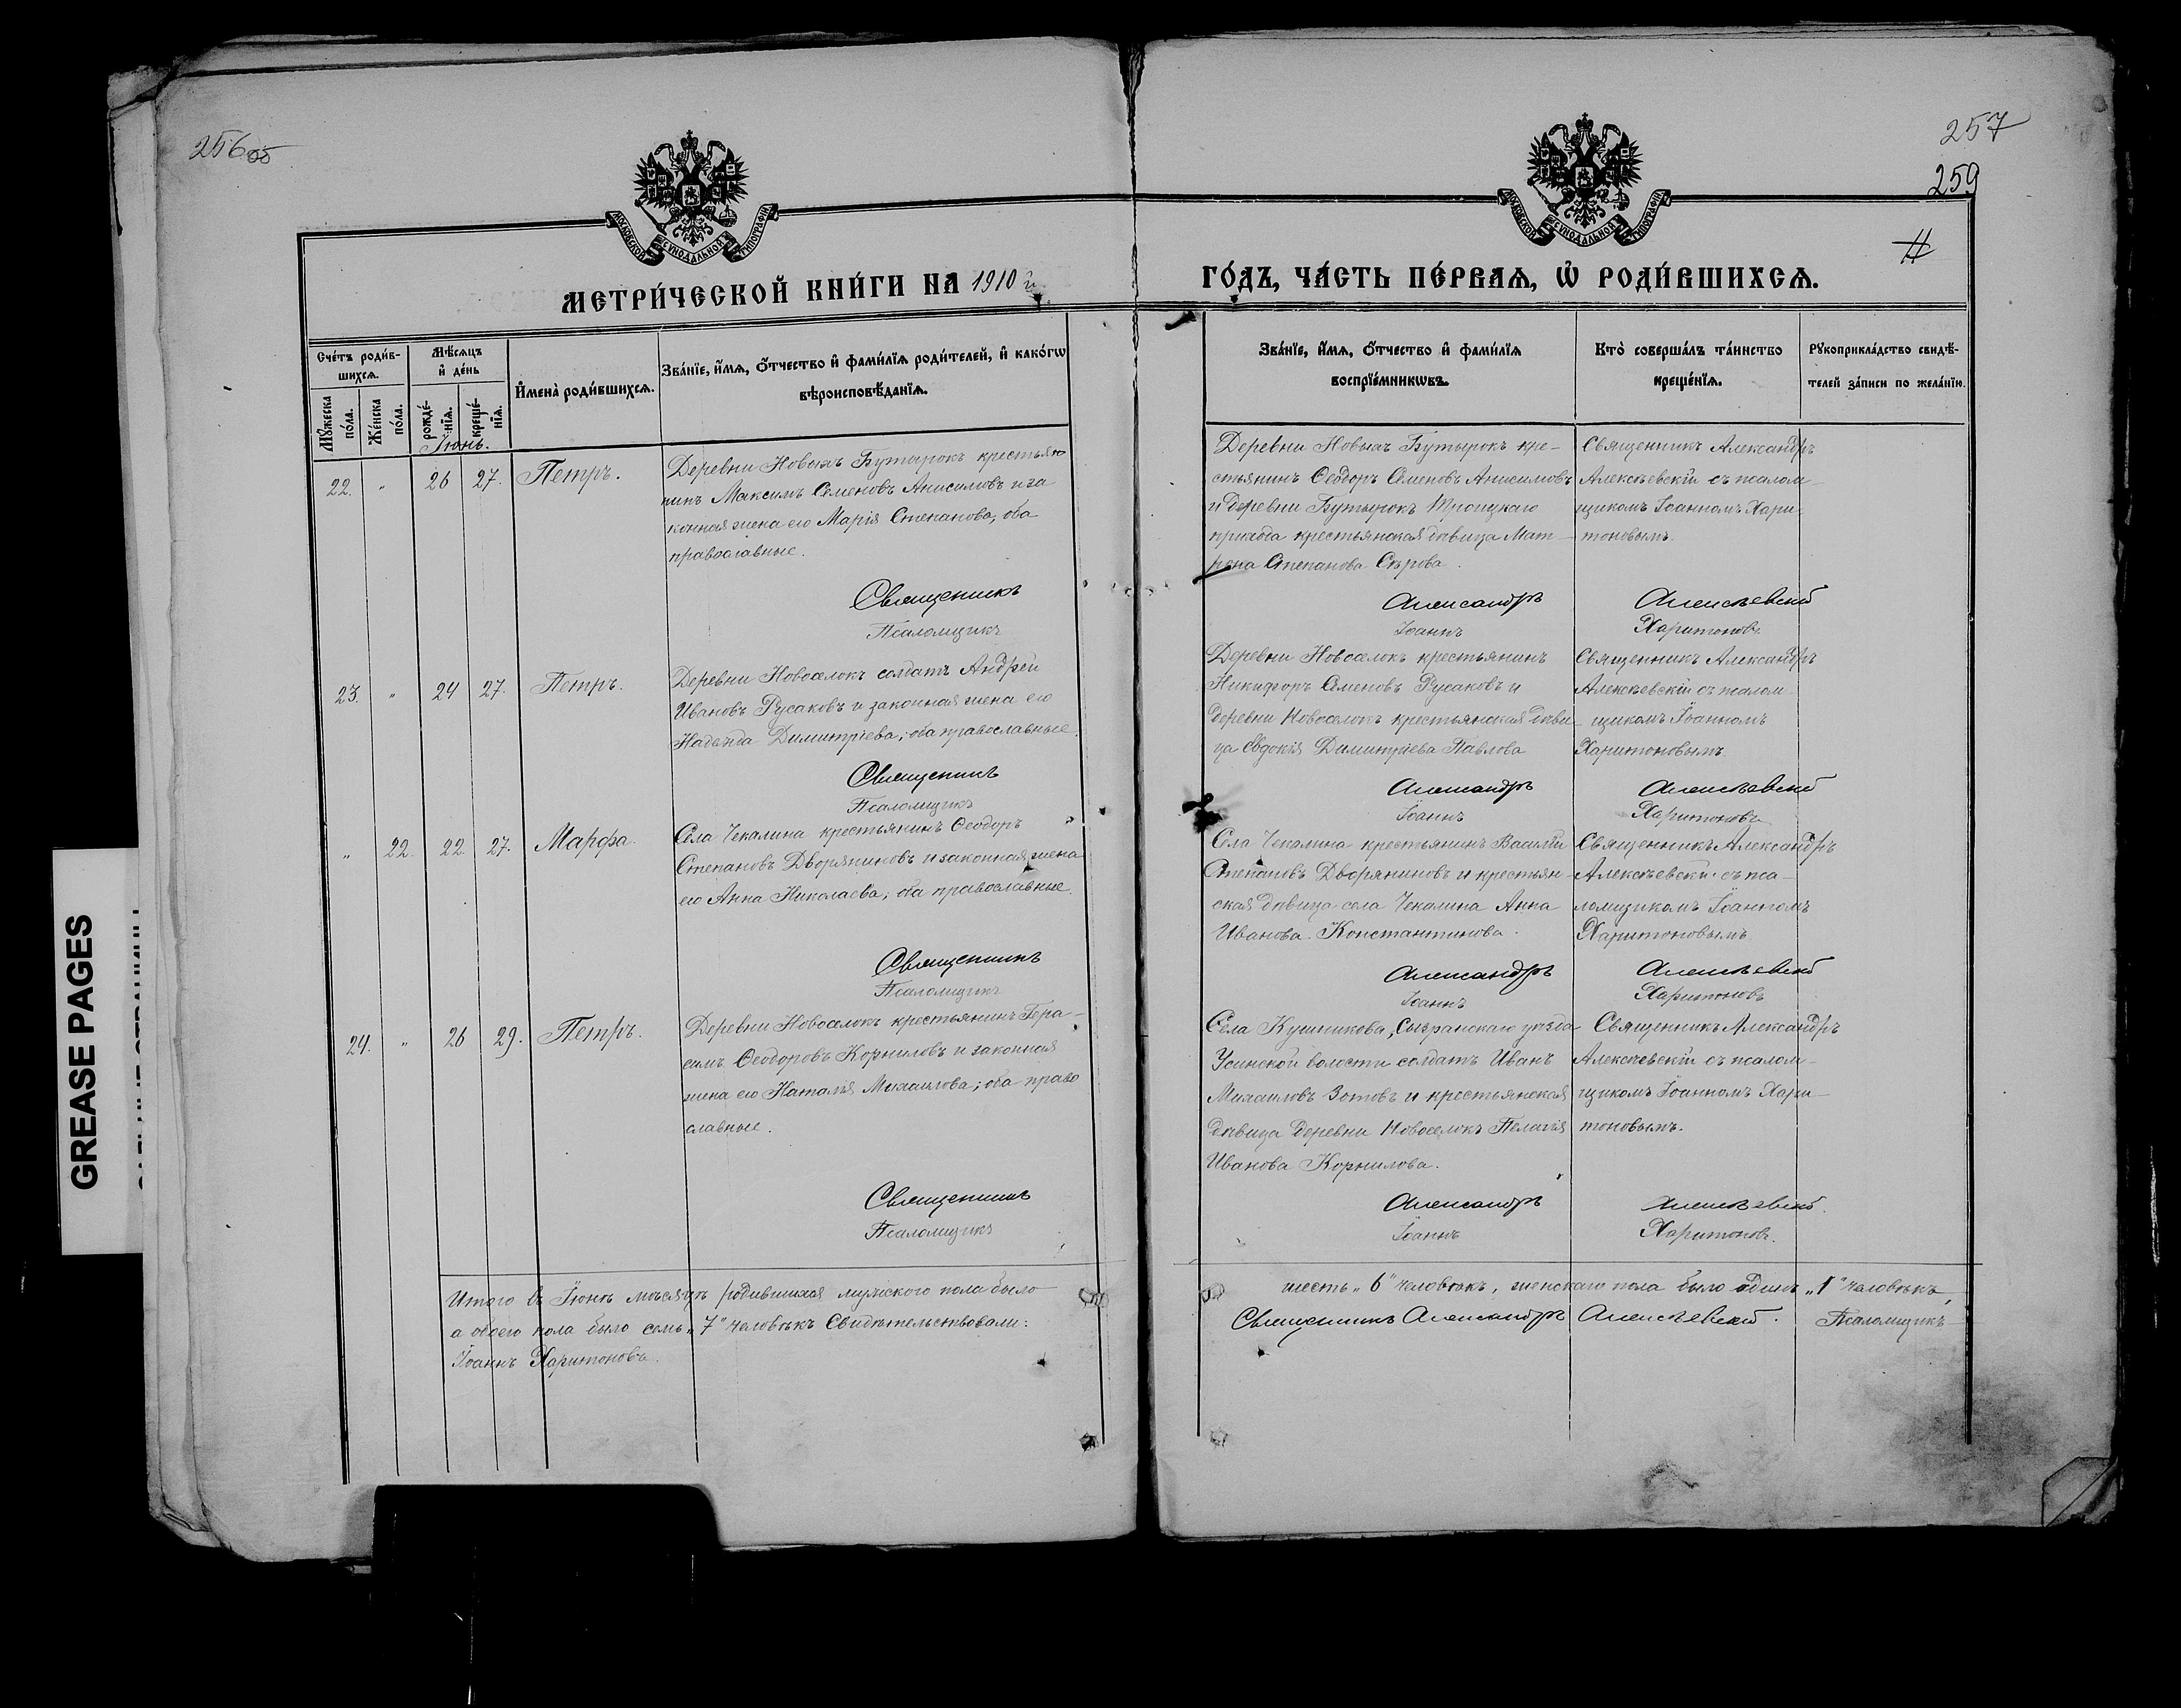 256 об
257
259
МОСКОВСКОЙ СѴНОДАЛЬНОЙ ТИПОГРАФІИ
МОСКОВСКОЙ СѴНОДАЛЬНОЙ ТИПОГРАФІИ
МЕТРИ́ЧЕСКОЙ КНИ́ГИ НА 1910 г.
ГО́ДЪ, ЧА́СТЬ ПЕ́РВАѦ, Ѡ҆ РОДИ́ВШИХСѦ.
Сче́тъ роди́в-
шихсѧ.
Мꙋ́жеска по́ла.
Же́нска по́ла.
Мѣ́сѧцъ и҆ де́нь
рожде́-нїѧ.
креще́-нїѧ.
И҆мена̀ роди́вшихсѧ.
Зва́нїе, и҆́мѧ, ѻ҆́тчество и҆ фами́лїѧ роди́телей, и҆ како́гѡ
вѣроисповѣ́данїѧ.
Зва́нїе, и҆́мѧ, ѻ҆́тчество и҆ фами́лїѧ
воспрїе́мникѡвъ.
Кто̀ соверша́лъ та́инство
креще́нїѧ.
Рꙋкоприкла́дство свидѣ́-
телей за́писи по жела́нїю.
Іюнь.
22. " 26 27. Петръ.
Деревни Новыхъ Бутырокъ крестья-
нинъ Максимъ Семеновъ Анисимовъ и за
конная жена его Марія Степанова, оба
православные.
Деревни Новыхъ Бутырокъ кре-
стьянинъ Ѳеодоръ Семеновъ Анисимовъ
и деревни Бутырокъ Троицкаго
прихода крестьянская дѣвица Мат-
рона Степанова Сѣрова.
Священникъ Александръ
Алексѣевскій съ псалом-
щикомъ Іоанномъ Хари-
тоновымъ.
Священникъ Александръ Алексѣевскій
Псаломщикъ Іоаннъ Харитоновъ
23. " 24 27. Петръ.
Деревни Новоселокъ солдатъ Андрей
Ивановъ Русаковъ и законная жена его
Надежда Димитріева, оба православные.
Деревни Новоселокъ крестьянинъ
Никифоръ Семеновъ Русаковъ и
деревни Новоселокъ крестьянская дѣви-
ца Евдокія Димитріева Павлова
Священникъ Александръ
Алексѣевскій съ псалом-
щикомъ Іоанномъ
Харитоновымъ.
Священникъ Александръ Алексѣевскій
Псаломщикъ Іоаннъ Харитоновъ
" 22. 22 27. Марфа.
Села Чекалина крестьянинъ Ѳеодоръ
Степановъ Дворяниновъ и законная жена
его Анна Николаева, оба православные.
Села Чекалина крестьянинъ Василій
Степановъ Дворяниновъ и крестьян-
ская дѣвица села Чекалина Анна
Иванова Константинова.
Священникъ Александръ
Алексѣевскій съ пса-
ломщикомъ Іоанномъ
Харитоновымъ
Священникъ Александръ Алексѣевскій
Псаломщикъ Іоаннъ Харитоновъ
24. " 26 29. Петръ.
Деревни Новоселокъ крестьянинъ Гера-
симъ Ѳеодоровъ Корниловъ и законная
жена его Наталія Михаилова; оба право
славные.
Села Кушникова, Сызранскаго уѣзда
Усинской волости солдатъ Иванъ
Михаиловъ Зотовъ и крестьянская
дѣвица деревни Новоселокъ Пелагія
Иванова Корнилова.
Священникъ Александръ
Алексѣевскій съ псалом-
щикомъ Іоанномъ Хари-
тоновымъ.
Священникъ Александръ Алексѣевскій.
Псаломщикъ Іоаннъ Харитоновъ.
Итого въ Іюнѣ мѣсяцѣ родившихся мужского пола было шесть „6" человѣкъ, женскаго пола было одинъ „1" человѣкъ,
а обоего пола было семь „7" человѣкъ Свидѣтельствовали: Священникъ Александръ Алексѣевскій. Псаломщикъ
Іоаннъ Харитоновъ.
GREASE PAGES